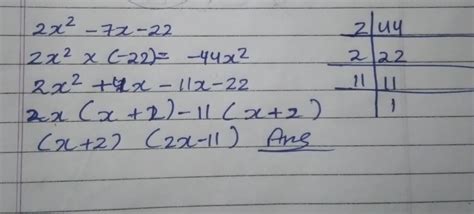 2x² - 7x - 22
2x² x (-22) = -44x²
2x² + 4x - 11x - 22
2x (x + 2) - 11 (x + 2)
(x + 2) (2x - 11) Ans
2 | 44
2 | 22
11 | 11
1